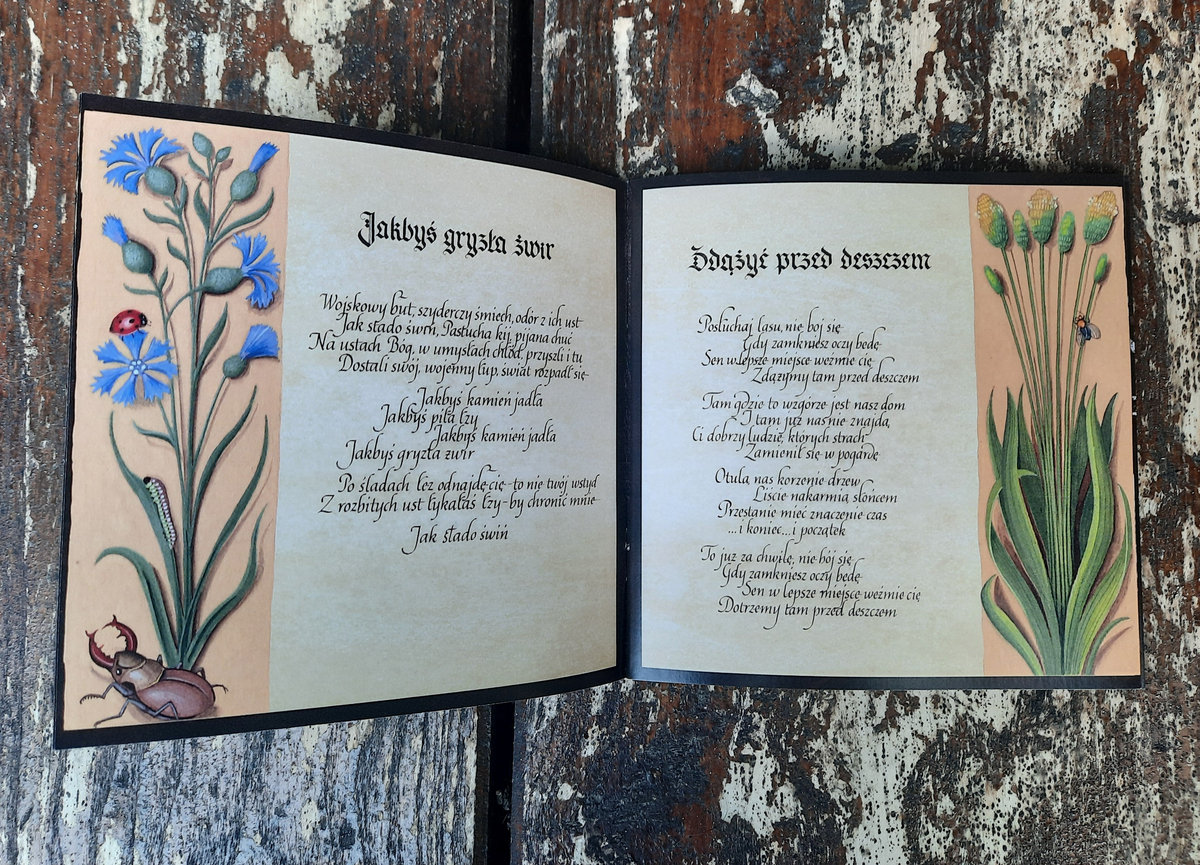 Jakbyś gryzła żwir
Wojskowy but, szyderczy śmiech, odór z ich ust
Jak stado świń, Pastucha kij, pijana chuć
Na ustach Bóg, w umysłach chłód, przyszli i tu
Dostali swój, wojenny łup, świat rozpadł się
Jakbyś kamień jadła
Jakbyś piła łzy
Jakbyś kamień jadła
Jakbyś gryzła żwir
Po śladach łez odnajdę cię - to nie twój wstyd
Z rozbitych ust łykałaś łzy - by chronić mnie
Jak stado świń
Zdążyć przed deszczem
Posłuchaj lasu, nie bój się
Gdy zamkniesz oczy będę
Sen w lepsze miejsce weźmie cię
Zdążymy tam przed deszczem
Tam gdzie to wzgórze jest nasz dom
I tam już nas nie znajdą
Ci dobrzy ludzie, których strach
Zamienił się w pogardę
Otulą nas korzenie drzew
Liście nakarmią słońcem
Przestanie mieć znaczenie czas
...i koniec...i początek
To już za chwilę, nie bój się
Gdy zamkniesz oczy będę
Sen w lepsze miejsce weźmie cię
Dotrzemy tam przed deszczem